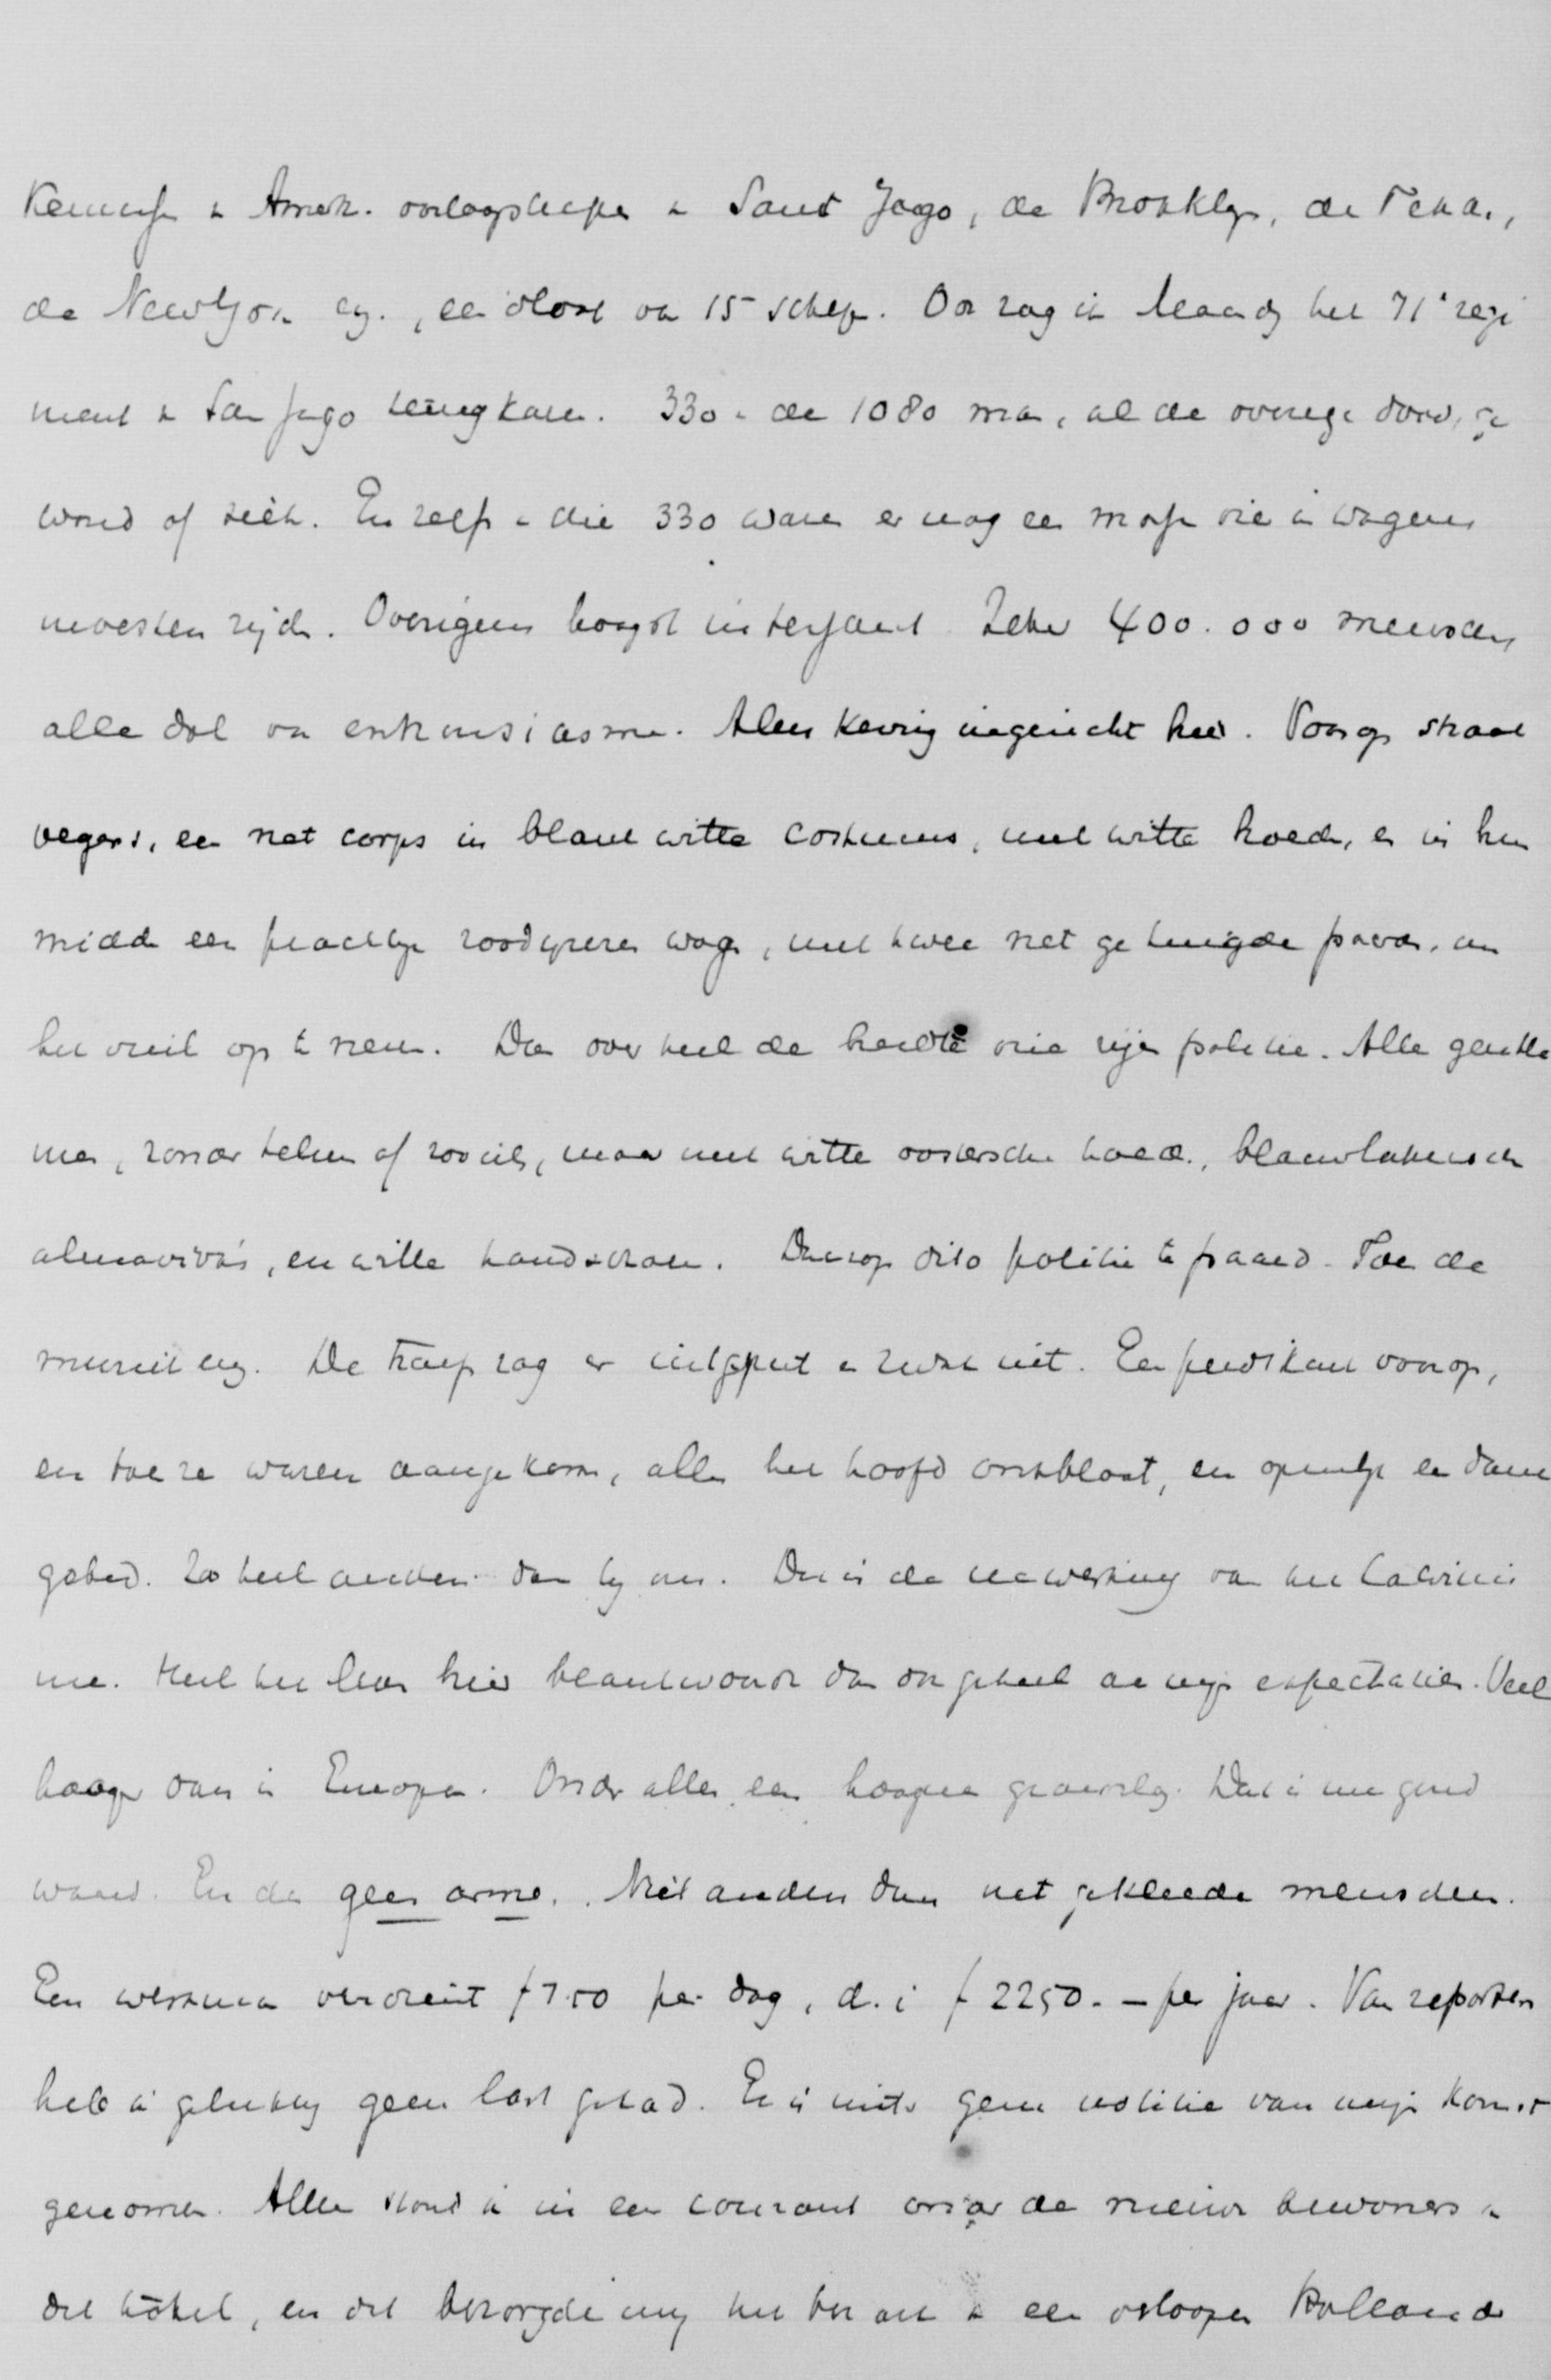 Amerik. oorlogschepen v. Sant Jago, de Brooklyn, de Texas,
de NewYork eg., een vloot van 15 schepen. Ook zag ik Maandg het 71e regi
ment v. San Jago terugkomen. 330 v. de 1080 man, al de overige dood, ge
wond of ziek. En zelfs v. die 330 waren er nog een massa die in wagens
moesten rijden. Overigens hoogst interessant. Zeker 400.000 menschen
alle dol van enthusiasme. Alles keurig ingericht hier. Voorop straat
vegers, een net corps in blauw witte costuums, met witte hoeden, en in hun
midden een prachtige roodijzeren wagen, met twee net getuigde paarden, om
het vuil op te nemen. Dan over heel de breedte drie rijen politie. Alle gentle
men, zonder helm of zoo iets, maar met witte oostersche hoeden, blauwlakensche
almaviva's, en witte handschoenen. Daarop dito politie te paard. Toen de
muziek eng. De troep zag er uitgeput en ruw uit. Een predikant voorop,
en toen ze waren aangekomen, allen het hoofd ontbloot, en openlijk een dank
gebed. Zoo heel anders dan bij ons. Dat is de nawerking van het Calvinis
me. Heel het leven hier beantwoordt dan ook geheel aan mijn expectatie. Veel
hooger dan in Europa. Onder alles een hoogere grondslag. Dat is me goud
waard. En dan geen armen. Niet anders dan net gekleede menschen.
Een werkman verdient f 7.50 per dag, d.i. f 2250.- per jaar. Van reporters
heb ik gelukkig geen last gehad. Er is niets geen notitie van mijn komst
genomen. Alleen stond ik in een courant onder de nieuwe bewoners v.
dit hôtel, en dit bezorgde mij het bezoek v. een verloopen Hollander